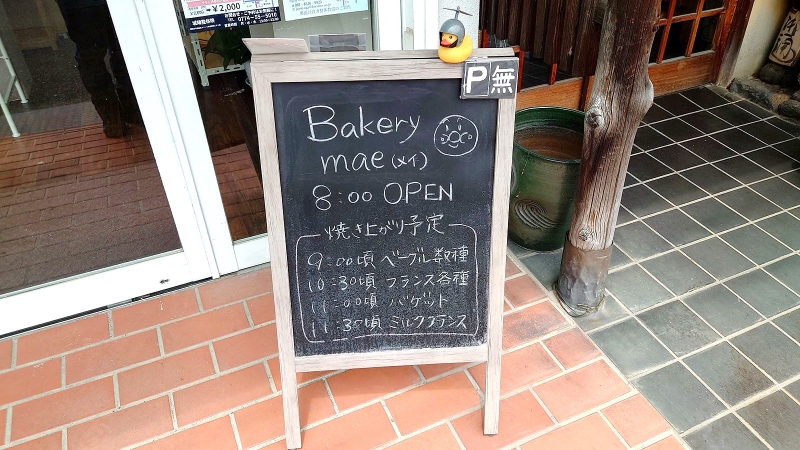 ¥2,000
TEL 0774-55-5010
P無
Bakery
mae(メイ)
8:00 OPEN
焼き上がり予定
9:00頃 ベーグル数種
10:30頃 フランス各種
11:00頃 バゲット
11:30頃 ミルクフランス